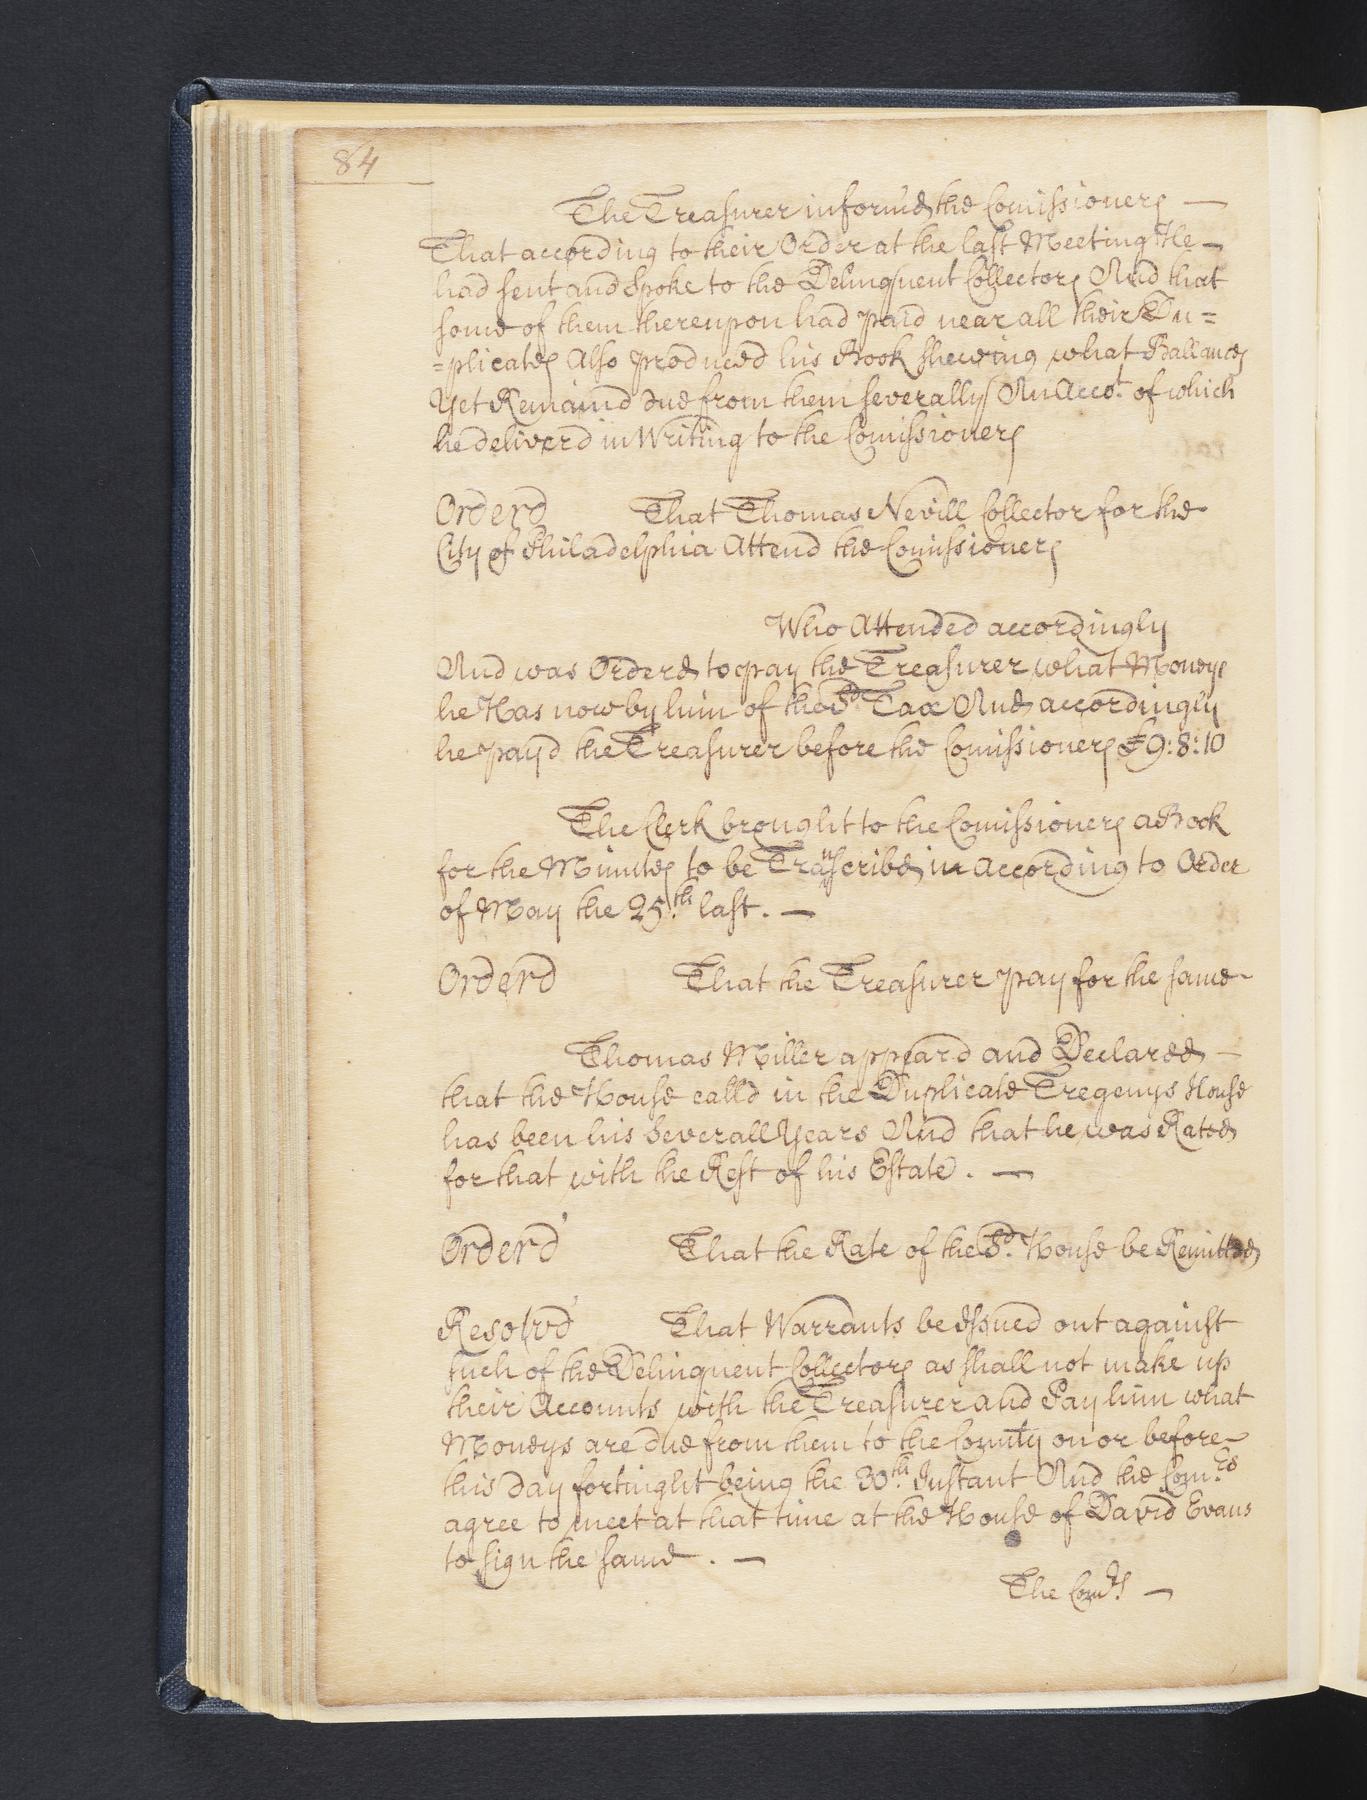 84
The Treasurer inform'd the Comissioners —
That according to their Order at the last Meeting He —
had sent and Spoke to the Delinquent Collectors And that
some of them thereupon had paid near all their Du=
=plicates Also produced his Book shewing what Ballances
Yet Remaind due from them severally An Acco.t of which
he deliverd in Writing to the Comissioners
Orderd That Thomas Nevill Collector for the
City of Philadelphia Attend the Comissioners
Who Attended accordingly
And was Orderd to pay the Treasurer what Moneys
he Has now by him of the Sd. Tax And accordingly
he payd the Treasurer before the Comissioners £9:8:10
The Clerk brought to the Comissioners a Book
for the Minutes to be Transcribed in according to Order
of May the 25.th last. —
Orderd That the Treasurer pay for the same
Thomas Miller appeard and Declared —
that the House calld in the Duplicate Tregenys House
has been his Severall Years And that he was Rated
for that with the Rest of his Estate. —
Orderd' That the Rate of the Sd. House be Remitted
Resolvd' That Warrants be Issued out against
such of the Delinquent Collectors as shall not make up
their Accounts with the Treasurer and Pay him what
Moneys are due from them to the County on or before —
this day fortinght being the 30.th Instant And the Com.rs
agree to meet at that time at the House of David Evans
to sign the same. —
The Com.rs —